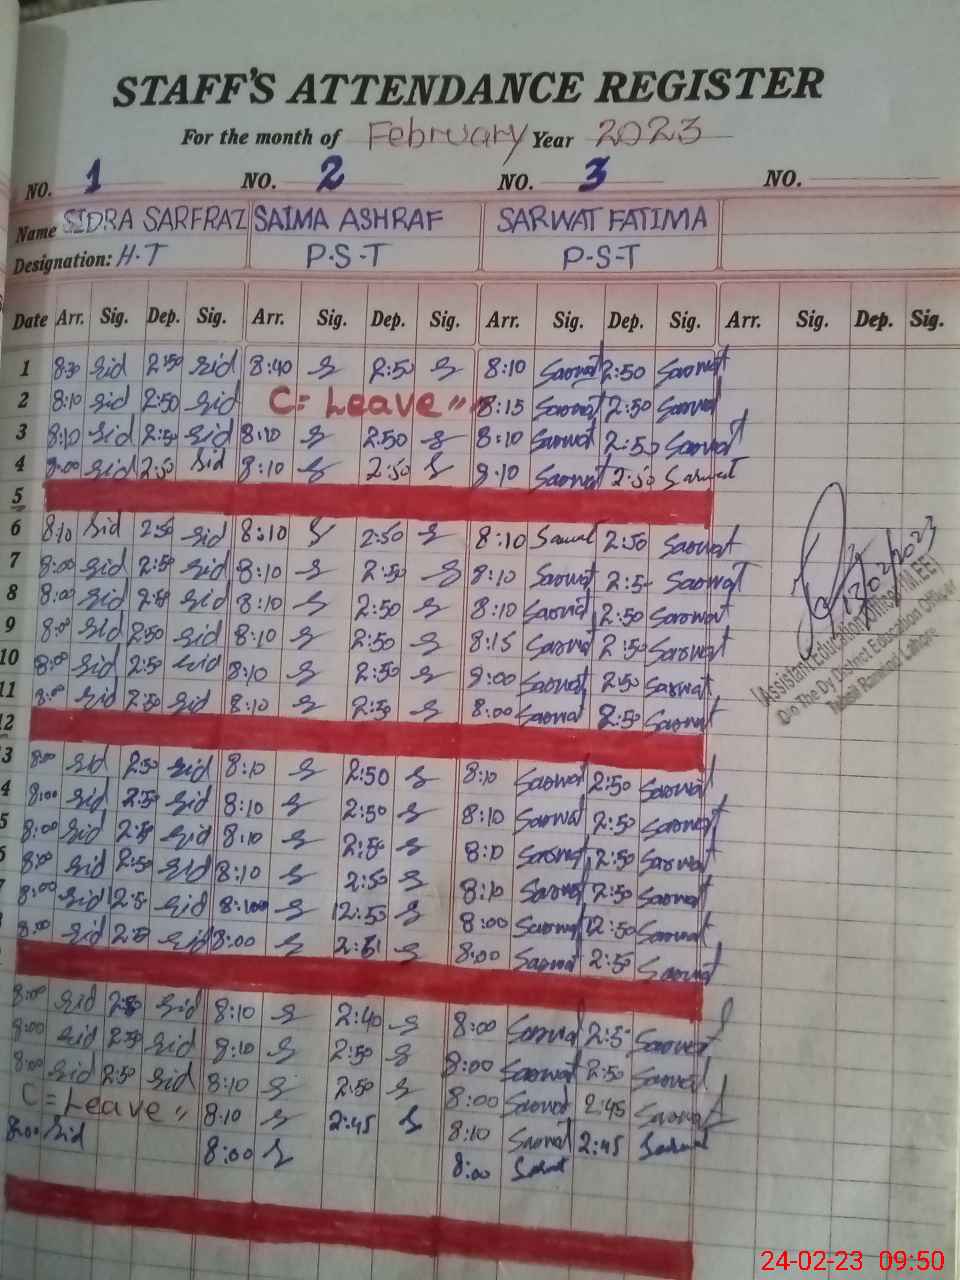 STAFF'S ATTENDANCE REGISTER
For the month of February Year 2023
NO. 1 NO. 2 NO. 3 NO.
Name SIDRA SARFRAZ SAIMA ASHRAF SARWAT FATIMA
Designation: H.T P.S.T P-S-T
Date Arr. Sig. Dep. Sig. Arr. Sig. Dep. Sig. Arr. Sig. Dep. Sig. Arr. Sig. Dep. Sig.
1 8:30 Sid 2:50 Sid 8:40 S 2:50 S 8:10 Sarwat 2:50 Sarwat
2 8:10 Sid 2:50 Sid C= Leave " 8:15 Sarwat 2:50 Sarwat
3 8:10 Sid 2:50 Sid 8:10 S 2:50 S 8:10 Sarwat 2:50 Sarwat
4 8:00 Sid 2:50 Sid 8:10 S 2:50 S 8:10 Sarwat 2:50 Sarwat
5
6 8:10 Sid 2:50 Sid 8:10 S 2:50 S 8:10 Sarwat 2:50 Sarwat
7 8:00 Sid 2:50 Sid 8:10 S 2:50 S 8:10 Sarwat 2:5 Sarwat
8 8:00 Sid 2:50 Sid 8:10 S 2:50 S 8:10 Sarwat 2:50 Sarwat
9 8:00 Sid 2:50 Sid 8:10 S 2:50 S 8:15 Sarwat 2:50 Sarwat
10 8:00 Sid 2:50 Sid 8:10 S 2:50 S 9:00 Sarwat 2:50 Sarwat
11 8:00 Sid 2:50 Sid 8:10 S 2:50 S 8:00 Sarwat 2:50 Sarwat
12
3 8:00 Sid 2:50 Sid 8:10 S 2:50 S 8:10 Sarwat 2:50 Sarwat
4 8:00 Sid 2:50 Sid 8:10 S 2:50 S 8:10 Sarwat 2:50 Sarwat
5 8:00 Sid 2:50 Sid 8:10 S 2:50 S 8:10 Sarwat 2:50 Sarwat
8:00 Sid 2:50 Sid 8:10 S 2:50 S 8:10 Sarwat 2:50 Sarwat
8:00 Sid 12:50 Sid S 12:50 S 8:00 Sarwat 12:50 Sarwat
8:00 Sid 2:50 Sid 8:00 S S 8:00 Sarwat 2:50 Sarwat
8:00 Sid 2:50 Sid 8:10 S 2:40 S 8:00 Sarwat 2:5 Sarwat
8:00 Sid 2:50 Sid 8:10 S 2:50 S 8:00 Sarwat 2:50 Sarwat
8:00 Sid 2:50 Sid 8:10 S 2:50 S 8:00 Sarwat 2:45 Sarwat
C= Leave " 8:10 S 2:45 S 8:10 Sarwat 2:45 Sarwat
8:00 Sid 8:00 S 8:00 Sarwat
Assistant Education Officer (M.EE)
O/o The Dy District Education Officer
Tehsil Raiwind Lahore
24-02-23 09:50